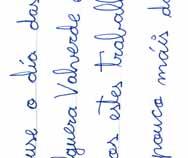 use o día das
guera Valverde e
os estes traball
pouco máis d